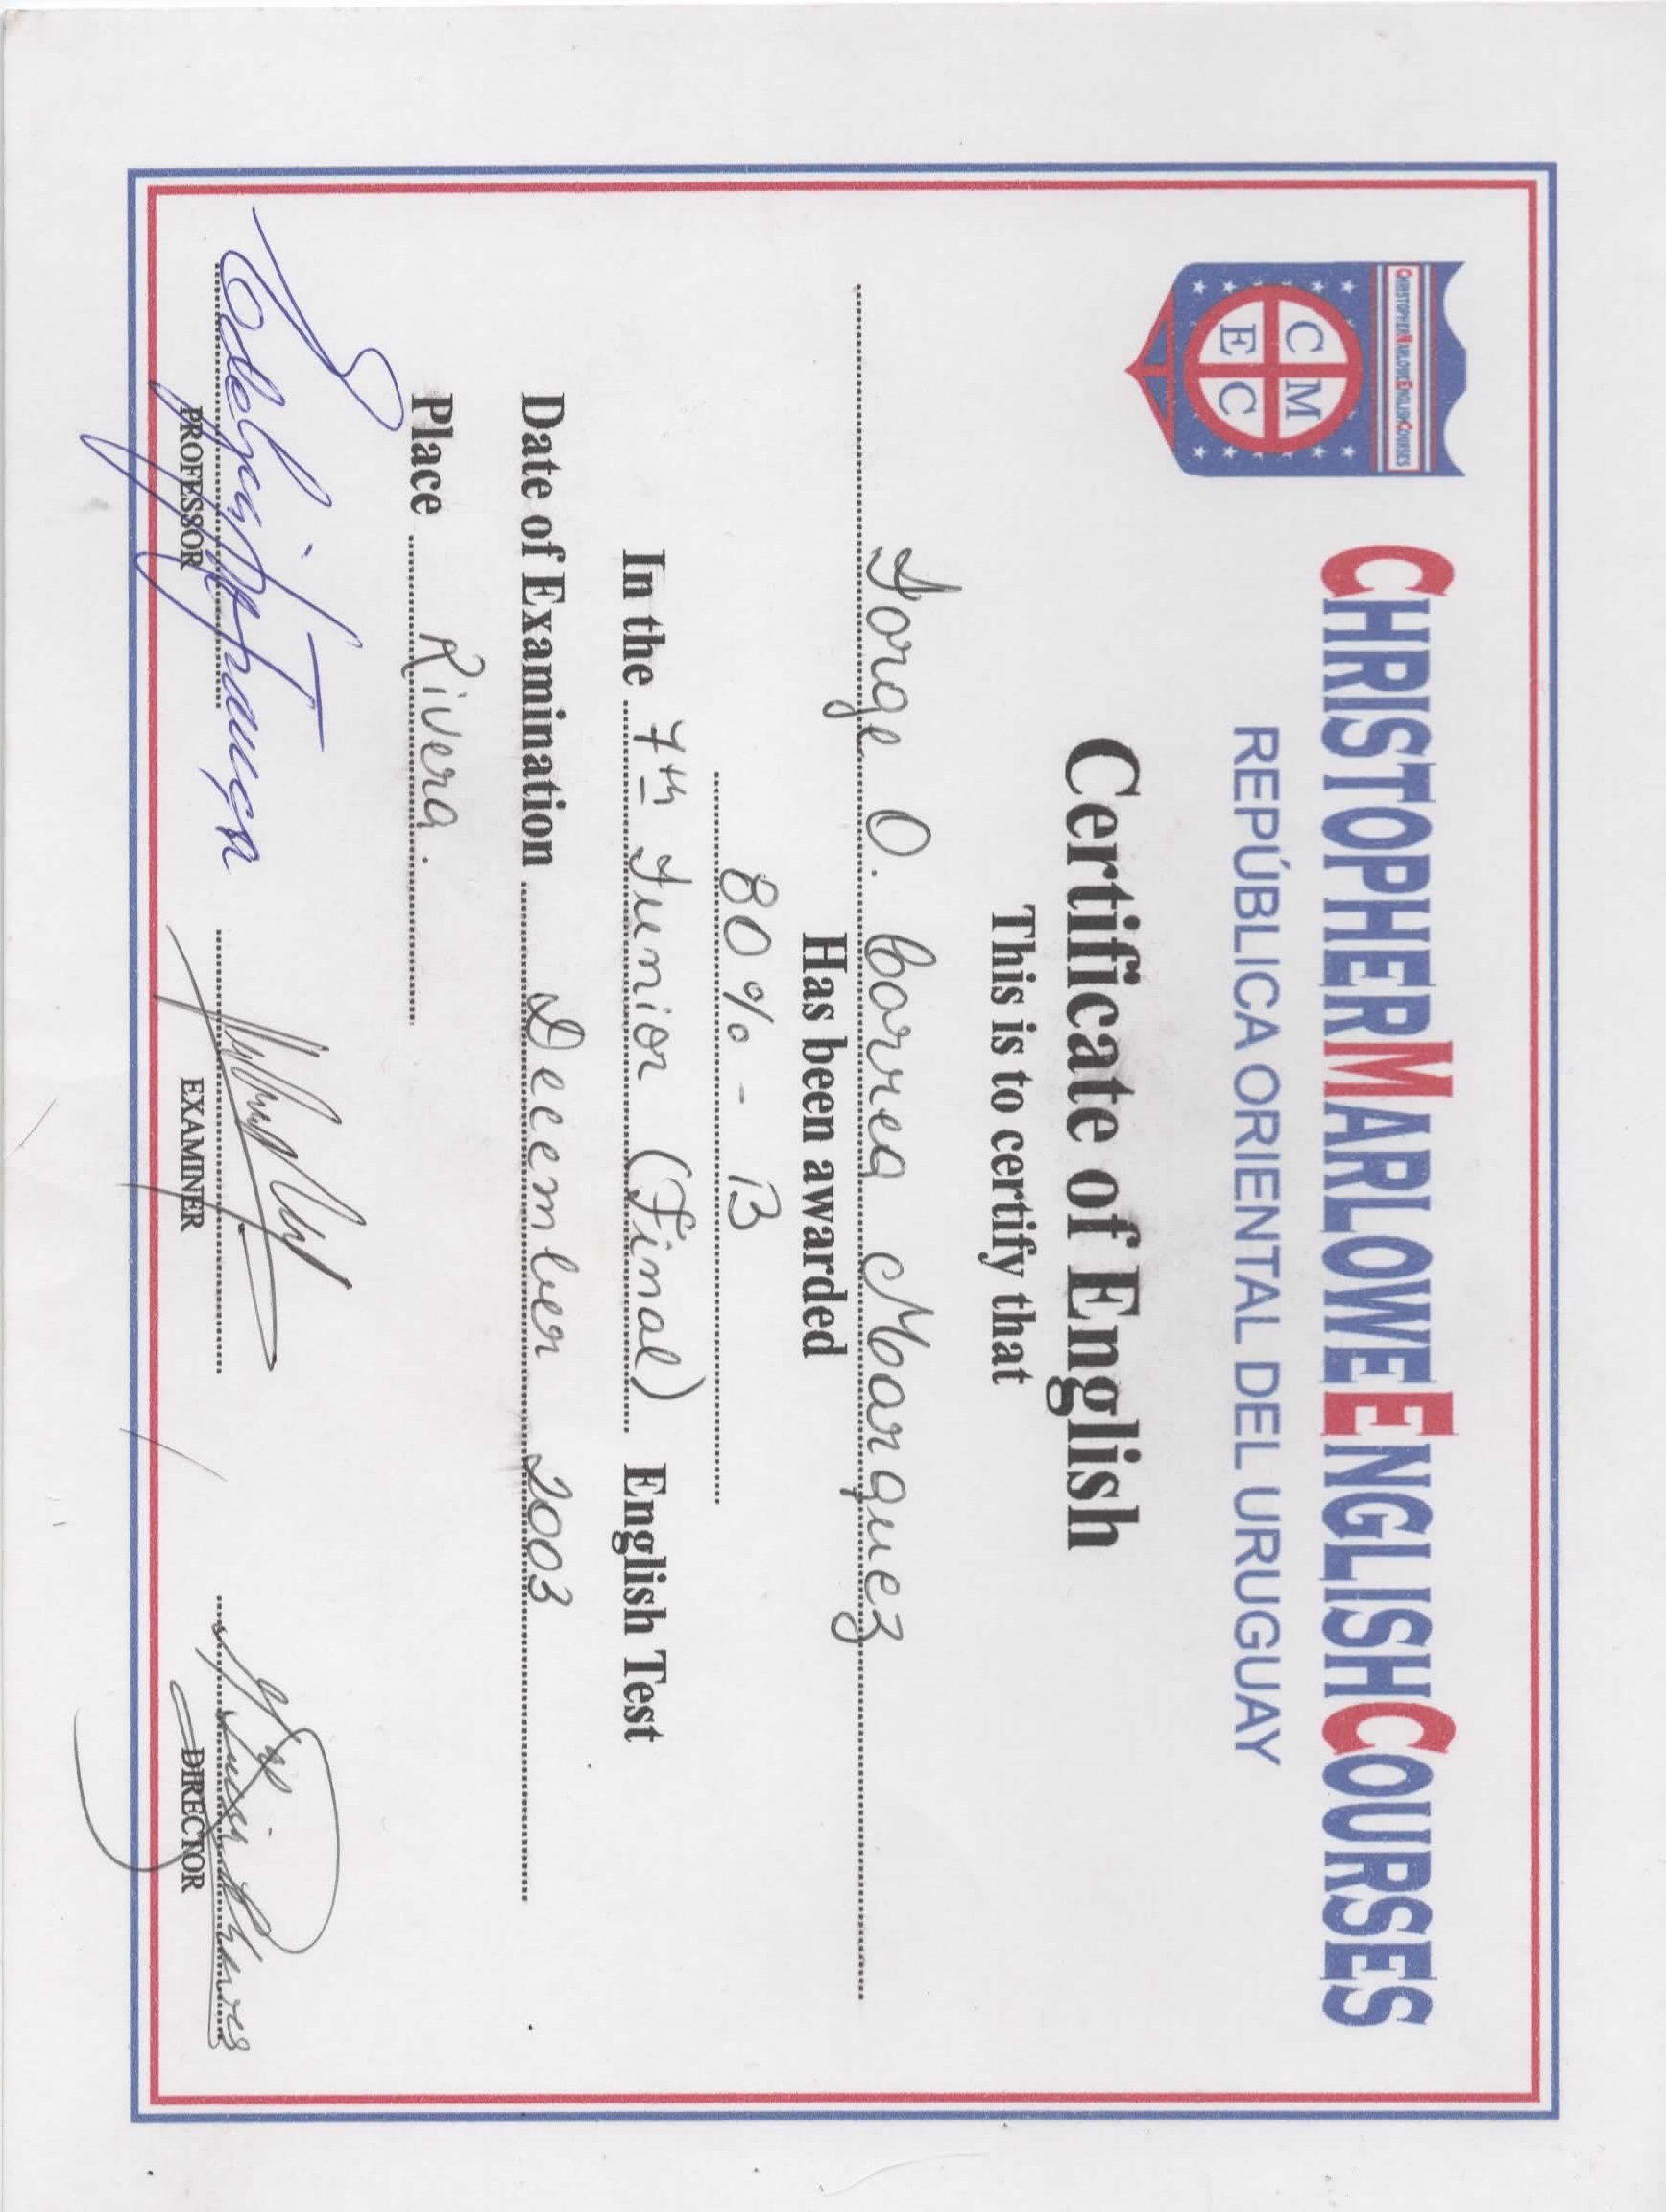 CHRISTOPHERMARLOWEENGLISHCOURSES
CHRISTOPHERMARLOWEENGLISHCOURSES
C M
E C
REPÚBLICA ORIENTAL DEL URUGUAY
Certificate of English
This is to certify that
Jorge O. Correa Marquez
Has been awarded
80% - B
In the 7th Junior (Final) English Test
Date of Examination December 2003
Place Rivera.
PROFESSOR
EXAMINER
DIRECTOR